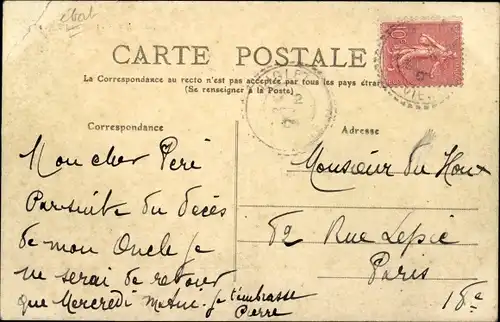 état
CARTE POSTALE
La Correspondance au recto n'est pas acceptée par tous les pays étran
(Se renseigner à la Poste)
Correspondance
Adresse
Mon cher Péré
Par suite du décès
de mon Oncle je
ne serai de retour
que Mercredi matin. je t'embrasse
Pierre
Monsieur du Houx
62 Rue Lepic
Paris
18e